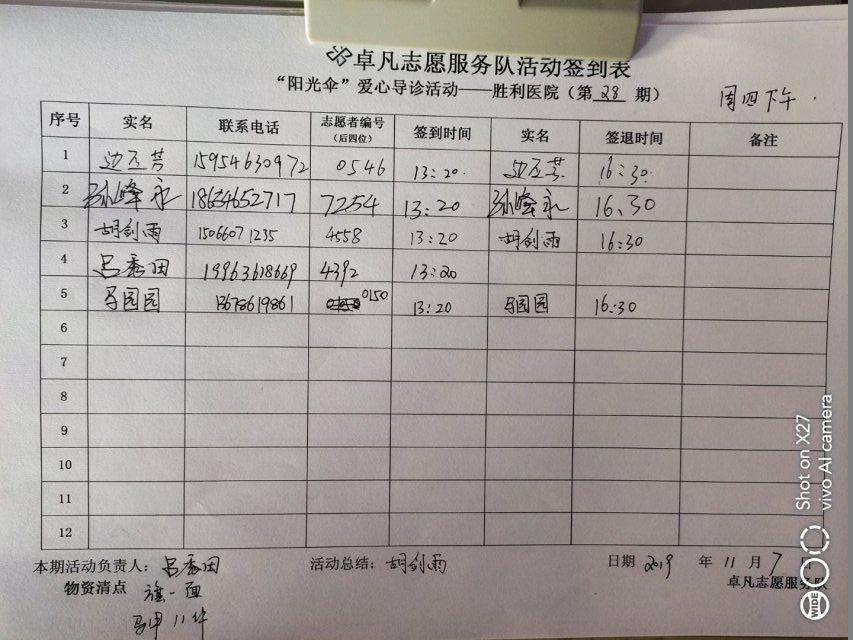 卓凡志愿服务队活动签到表
“阳光伞”爱心导诊活动——胜利医院（第 28 期）
周四下午.
序号 实名 联系电话 志愿者编号（后四位） 签到时间 实名 签退时间 备注
1 15954630972 0546 13:20. 16:30.
2 孙峰永 18654652717 7254 13:20 孙峰永 16、30
3 胡剑雨 15066071235 4558 13:20 胡剑雨 16:30
4 吕秀田 19963618669 4392 13:20
5 马园园 13678619861 0150 13:20 马园园 16:30
6
7
8
9
10
11
12
本期活动负责人：吕秀田 活动总结：胡剑雨 日期 2019 年 11 月 7 日
物资清点 旗一面 卓凡志愿服务队
马甲 11件
Shot on X27
vivo AI camera
WIDE